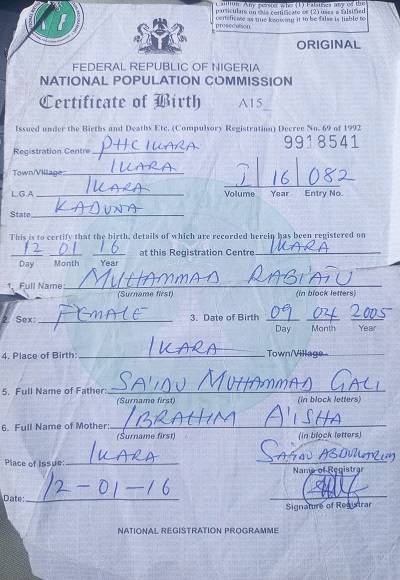 Caution: Any person who (1) Falsifies any of the
particulars on this certificate or (2) uses a falsified
certificate as true knowing it to be false is liable to
prosecution
ORIGINAL
FEDERAL REPUBLIC OF NIGERIA
NATIONAL POPULATION COMMISSION
Certificate of Birth A15
Issued under the Births and Deaths Etc. (Compulsory Registration) Decree No. 69 of 1992
Registration Centre PHC IKARA 9918541
Town/Village: IKARA
L.G.A IKARA I 16 082
Volume Year Entry No.
State KADUNA
This is to certify that the birth, details of which are recorded herein has been registered on
12 01 16 at this Registration Centre IKARA
Day Month Year
1. Full Name: MUHAMMAD RABI'ATU
(Surname first) (in block letters)
2. Sex: FEMALE 3. Date of Birth 09 04 2005
Day Month Year
4. Place of Birth: IKARA Town/Village
5. Full Name of Father: SA'IDU MUHAMMAD GALI
(Surname first) (in block letters)
6. Full Name of Mother: IBRAHIM A'ISHA
(Surname first) (in block letters)
Place of Issue: IKARA SA'IDU ABDULKARIM
Name of Registrar
Date: 12-01-16
Signature of Registrar
NATIONAL REGISTRATION PROGRAMME